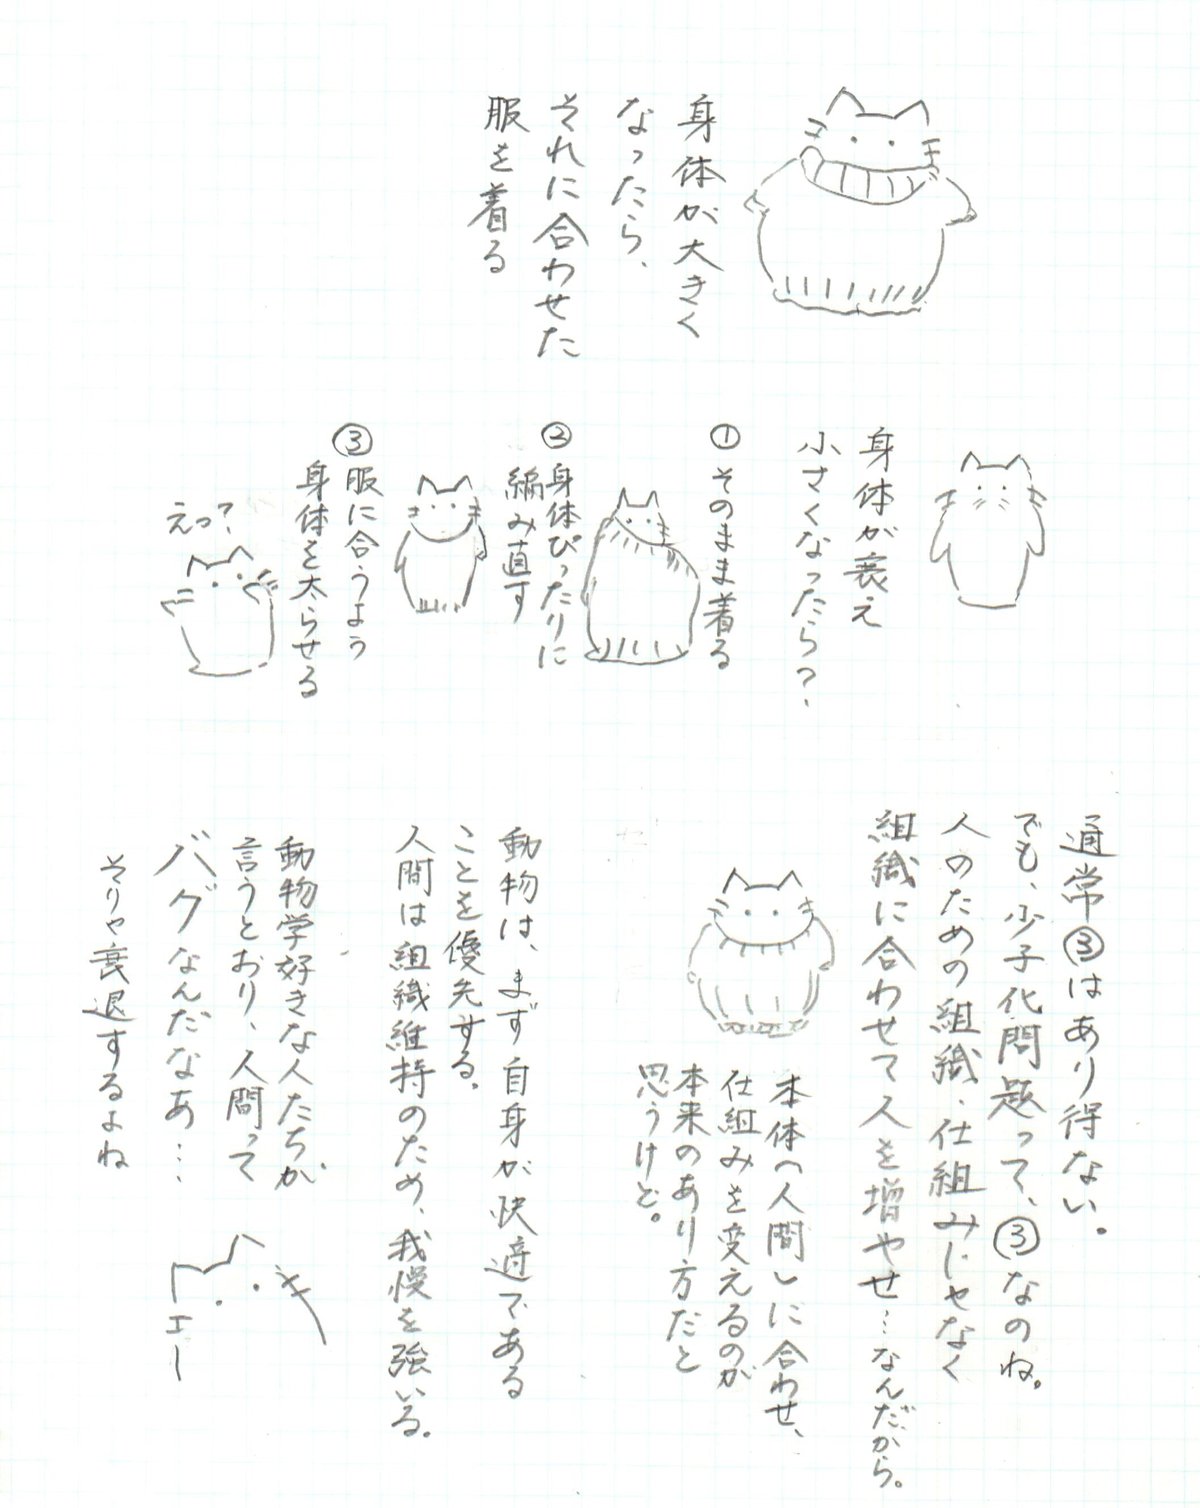 身体が大きく
なったら、
それに合わせた
服を着る
身体が衰え
小さくなったら?
① そのまま着る
② 身体ぴったりに
編み直す
③ 服に合うよう
身体を太らせる
えっ?
通常③はあり得ない。
でも、少子化問題って、③なのね。
人のための組織、仕組みじゃなく
組織に合わせて人を増やせ…なんだから。
本体(人間)に合わせ、
仕組みを変えるのが
本来のあり方だと
思うけど。
動物は、まず自身が快適である
ことを優先する。
人間は組織維持のため、我慢を強いる。
動物学好きな人たちが
言うとおり、人間って
バグなんだなぁ…
そりゃ衰退するよね